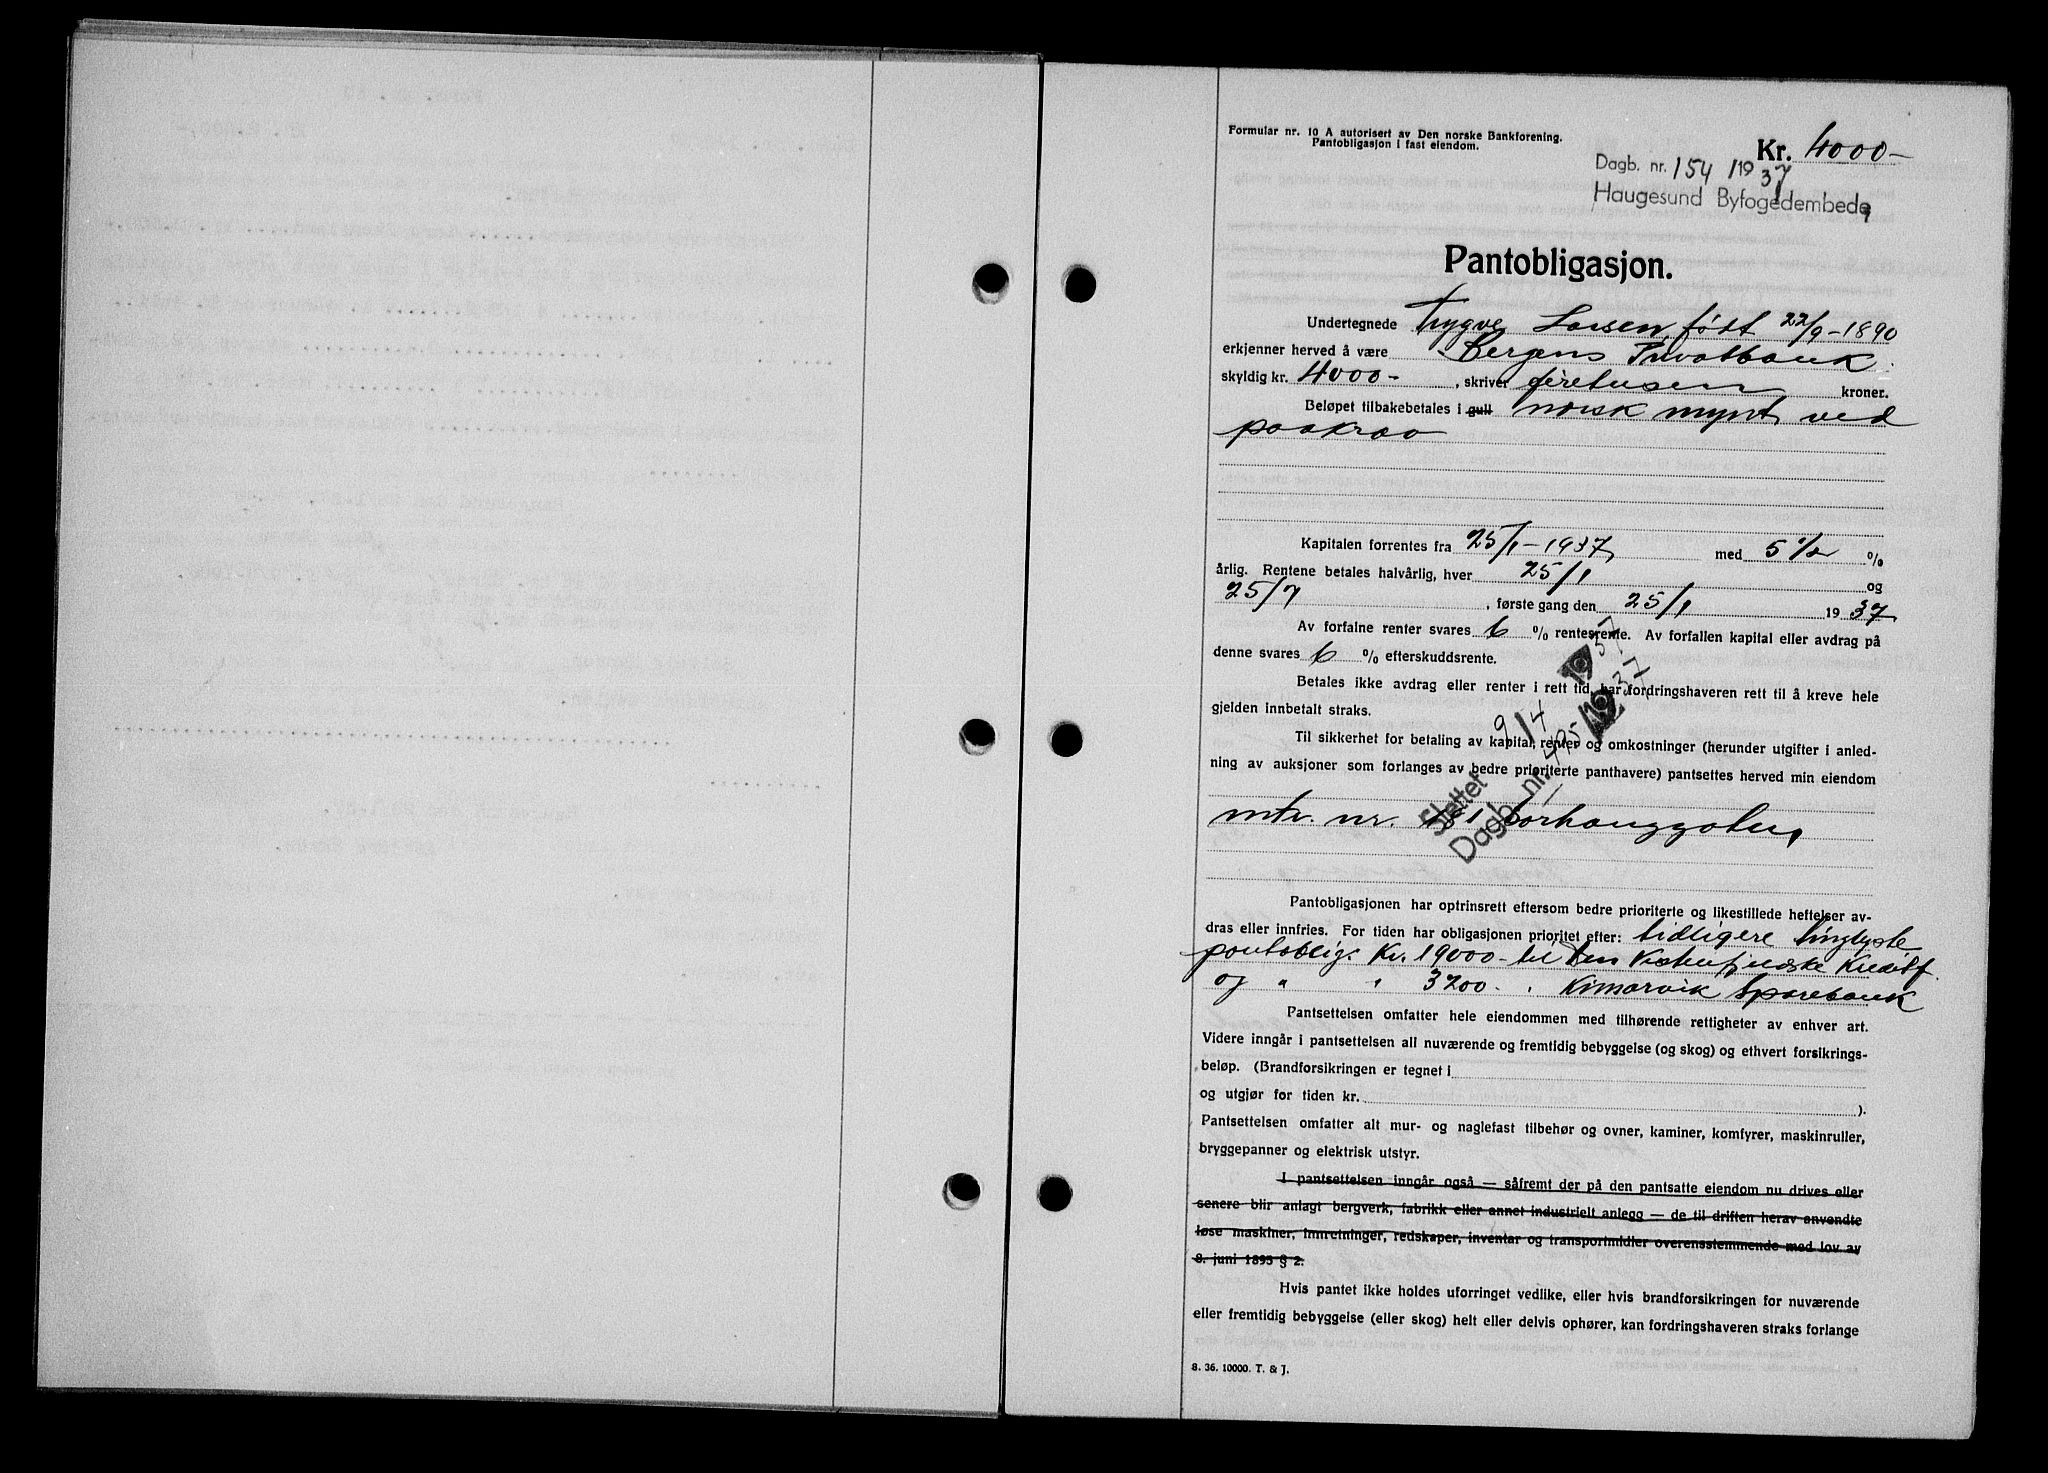 Formular nr. 10 A autorisert av Den norske Bankforening.
Pantobligasjon i fast eiendom.
Kr. 4000-
Dagb. nr. 154 1937
Haugesund Byfogedembede
Pantobligasjon.
Undertegnede Trygve Larsen, født 22/9-1890
erkjenner herved å være Bergens Privatbank
skyldig kr. 4000- , skriver firetusen kroner.
Beløpet tilbakebetales i gull norsk mynt ved
paakrav
Kapitalen forrentes fra 25/1-1937 med 5 1/2 %
årlig. Rentene betales halvårlig, hver 25/1 og
25/7 , første gang den 25/1 1937
Av forfalne renter svares 6 % rentesrente. Av forfallen kapital eller avdrag på
denne svares 6 % efterskuddsrente.
Betales ikke avdrag eller renter i rett tid, har fordringshaveren rett til å kreve hele
gjelden innbetalt straks.
Til sikkerhet for betaling av kapital, renter og omkostninger (herunder utgifter i anled-
ning av auksjoner som forlanges av bedre prioriterte panthavere) pantsettes herved min eiendom
Slettet 9/4 1937
Dagb. nr. 495/1937
mtr. nr. 181 Sørhauggaten,
Pantobligasjonen har optrinsrett eftersom bedre prioriterte og likestillede heftelser av-
dras eller innfries. For tiden har obligasjonen prioritet efter: tidligere tinglyste
pantoblig. Kr. 19000- til Den Vestenfjeldske
og " " 3200- " Kinsarvik Sparebank
Pantsettelsen omfatter hele eiendommen med tilhørende rettigheter av enhver art.
Videre inngår i pantsettelsen all nuværende og fremtidig bebyggelse (og skog) og ethvert forsikrings-
beløp. (Brandforsikringen er tegnet i
og utgjør for tiden kr. ).
Pantsettelsen omfatter alt mur- og naglefast tilbehør og ovner, kaminer, komfyrer, maskinruller,
bryggepanner og elektrisk utstyr.
I pantsettelsen inngår også — såfremt der på den pantsatte eiendom nu drives eller
senere blir anlagt bergverk, fabrikk eller annet industrielt anlegg — de til driften herav anvendte
løse maskiner, innretninger, redskaper, inventar og transportmidler overensstemmende med lov av
8. juni 1895 § 2.
Hvis pantet ikke holdes uforringet vedlike, eller hvis brandforsikringen for nuværende
eller fremtidig bebyggelse (eller skog) helt eller delvis ophører, kan fordringshaveren straks forlange
8. 36. 10000. T. & J.